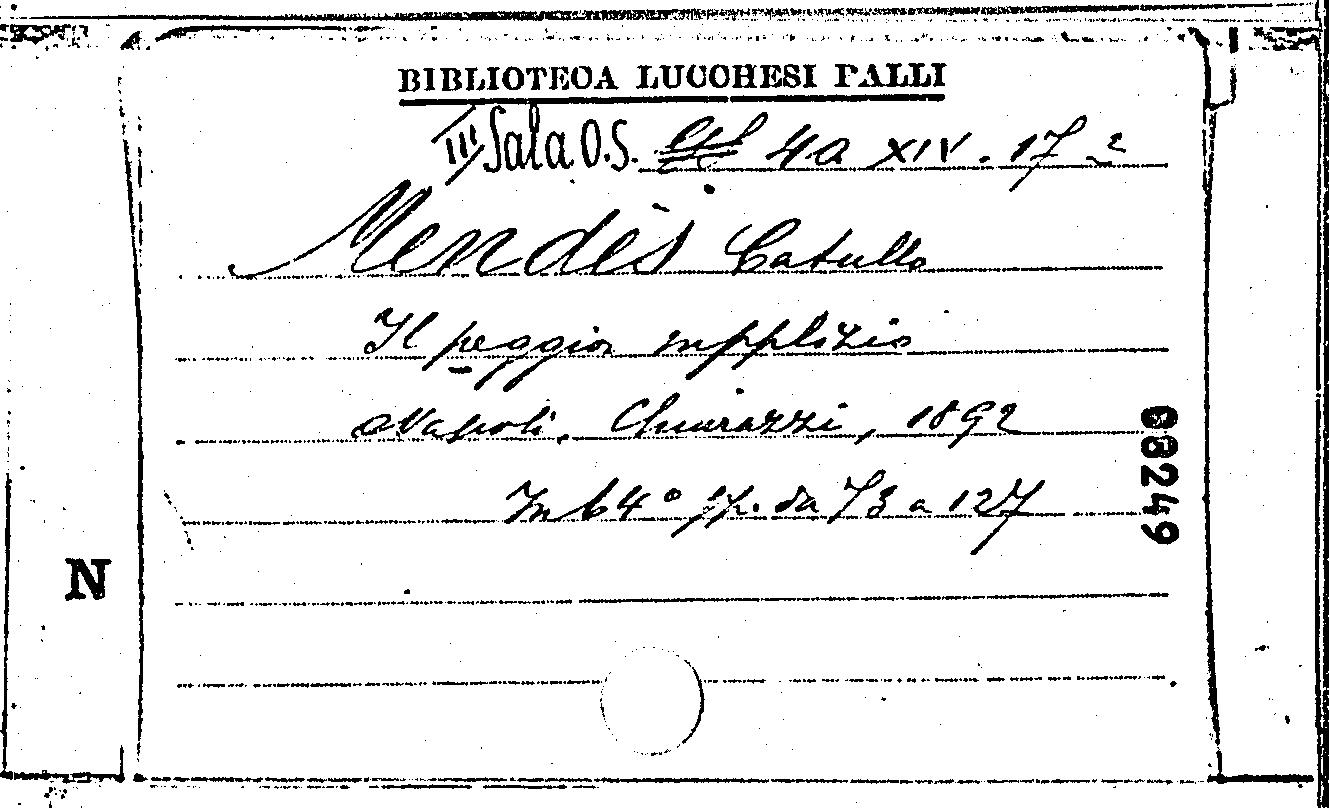 BIBLIOTECA LUCCHESI PALLI
III Sala O.S. 4a XIV. 17 2
Mendès Catullo
Il peggior supplizio
Napoli, Chiurazzi, 1892
In 64° pp. da 73 a 127
68249
N